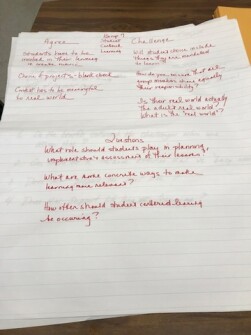 Agree
Group 7
Student
Centered
Learning
Challenge
Students have to be
in their learning
create more
Will students choose include
things they are mandated
to learn?
Choice & projects - blank sheet
How do you ensure that all
group members share equally
their responsibility?
has to be meaningful
to real world
Is their real world actually
the adult real world?
What is the "real world"?
Questions
What role should students play in planning,
implementation & assessment of their lessons?
What are some concrete ways to make
learning more relevant?
How often should student centered learning
be occuring?